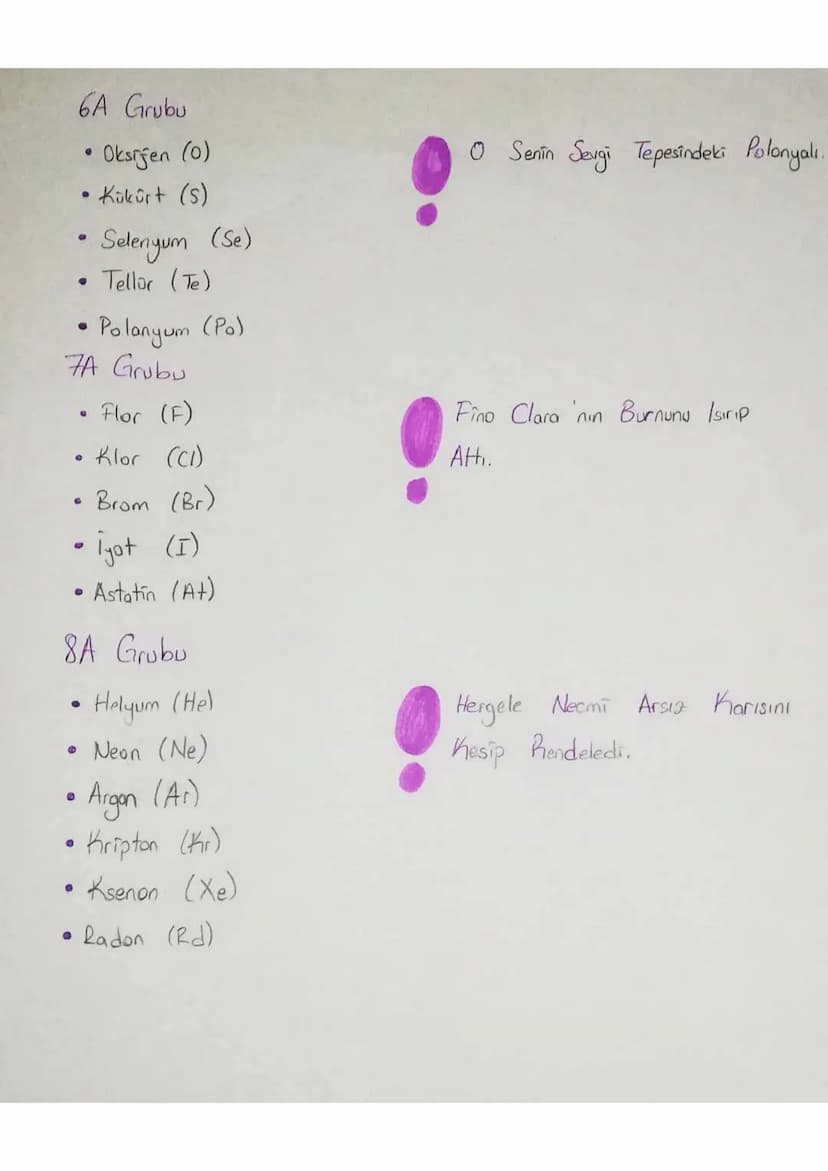 6A Grubu
• Oksijen (O)
O Senin Sevgi Tepesindeki Polonyalı.
• Kükürt (S)
• Selenyum (Se)
• Tellür (Te)
• Polanyum (Po)
7A Grubu
• Flor (F)
Fino Clara'nın Burnunu Isırıp
• Klor (Cl)
Attı.
• Brom (Br)
• İyot (I)
• Astatin (At)
8A Grubu
• Helyum (He)
Hergele Necmi Arsız Karısını
• Neon (Ne)
Kesip Rendeledi.
• Argon (Ar)
• Kripton (Kr)
• Ksenon (Xe)
• Radon (Rd)